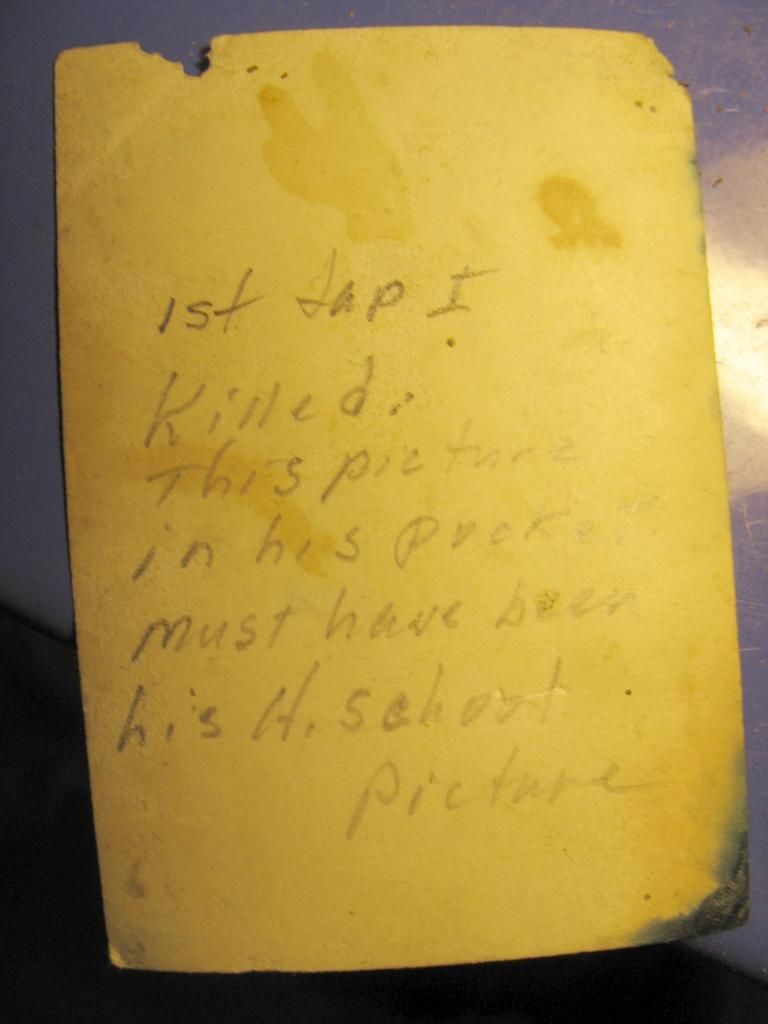 1st Jap I
Killed.
This picture
in his pocket
must have been
his H. School
picture